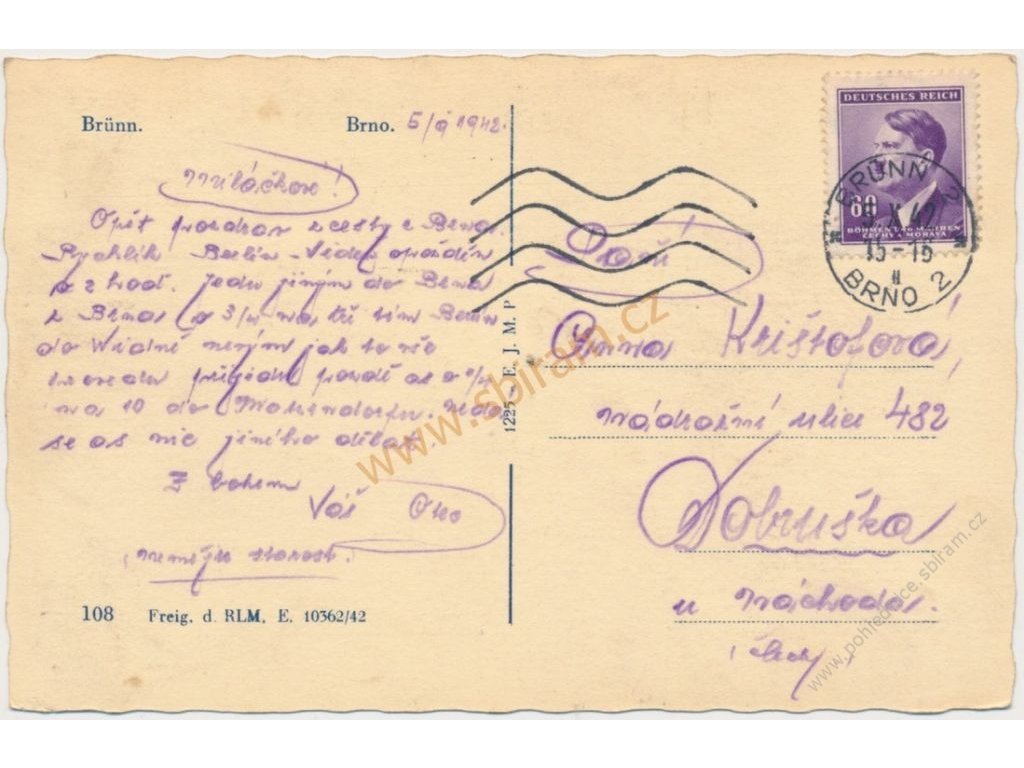 Brünn. Brno. 5/9 1942.
Miláčkové!
Opět pozdrav z cesty z Brna.
Rychlík Berlin - Videň opozděn
o 2 hod. jedu jiným do Brna
z Brna o 3/4 na tři tím Berlin
do Wídně nevím jak to
přijedu pozdě as o
na 10 do Nedá
se as nic jiného dělat
Z bohem
Váš Oto
(nemějte starost.)
108 Freig. d. RLM. E. 10362/42
1225 - E. J. M. P.
DEUTSCHES REICH
60
BÖHMEN UND MÄHREN
ČECHY A MORAVA
BRÜNN 2
X 42
15-16
II
BRNO 2
Paní
Anna Krištofová,
nádražní ulice 482
Dobruška
u Náchoda.
Čechy
www.sbiram.cz
www.pohlednice.sbiram.cz